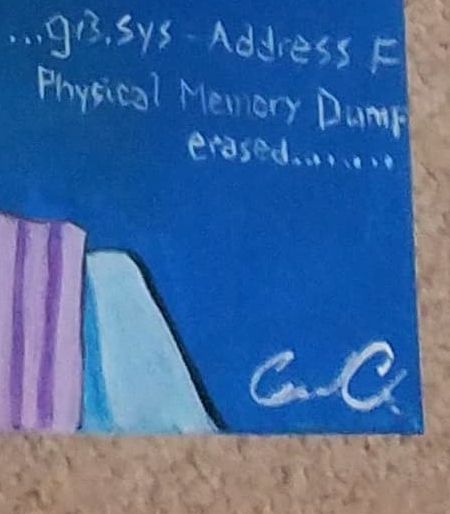 ...gv3.sys - Address F
Physical Memory Dump
erased........